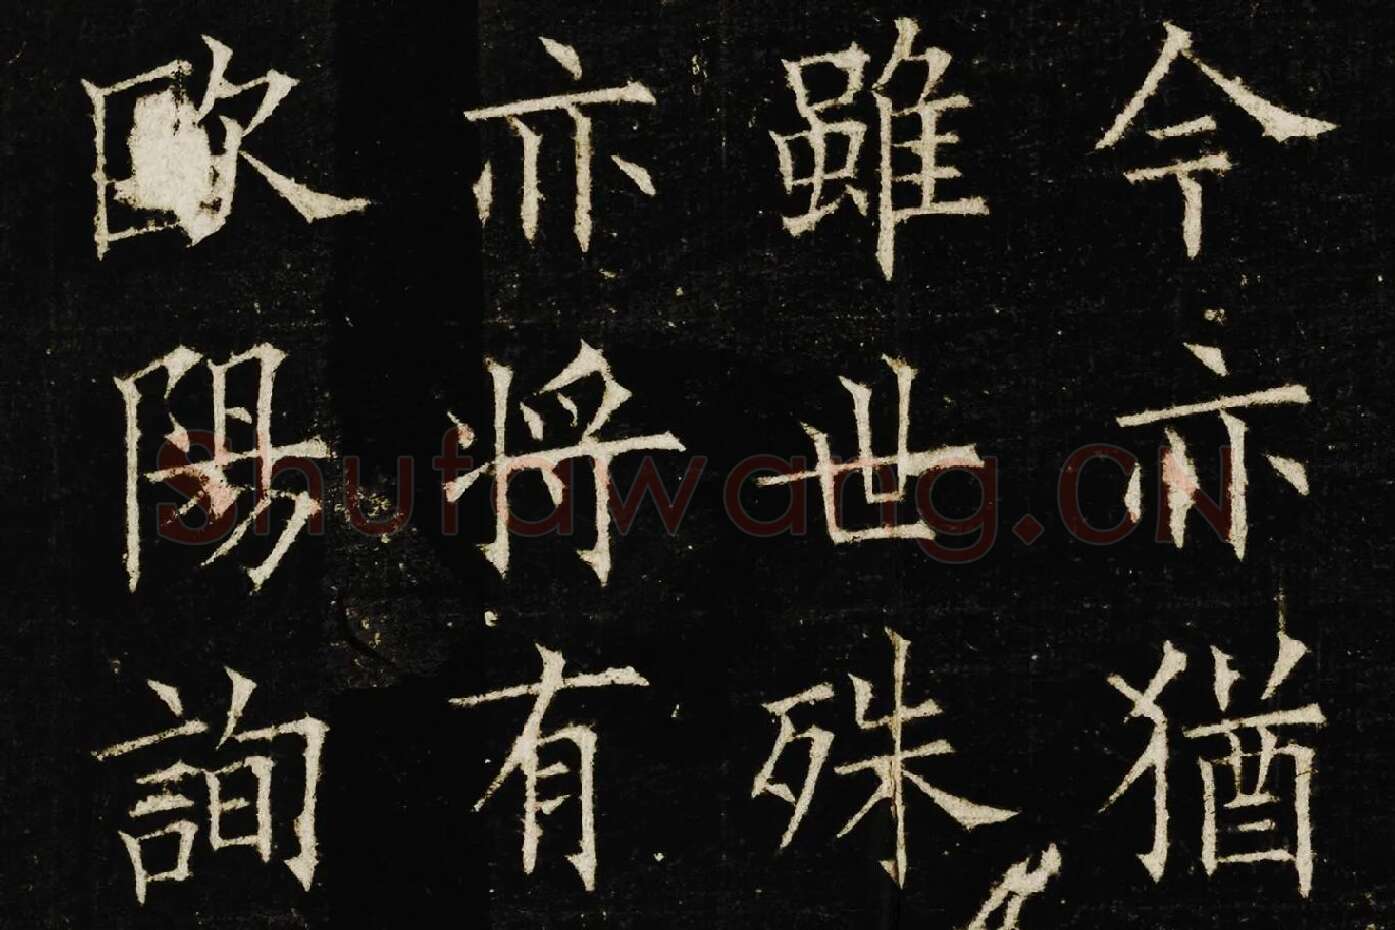 今亦猶
雖世殊
亦將有
歐陽詢
Shufawang.CN